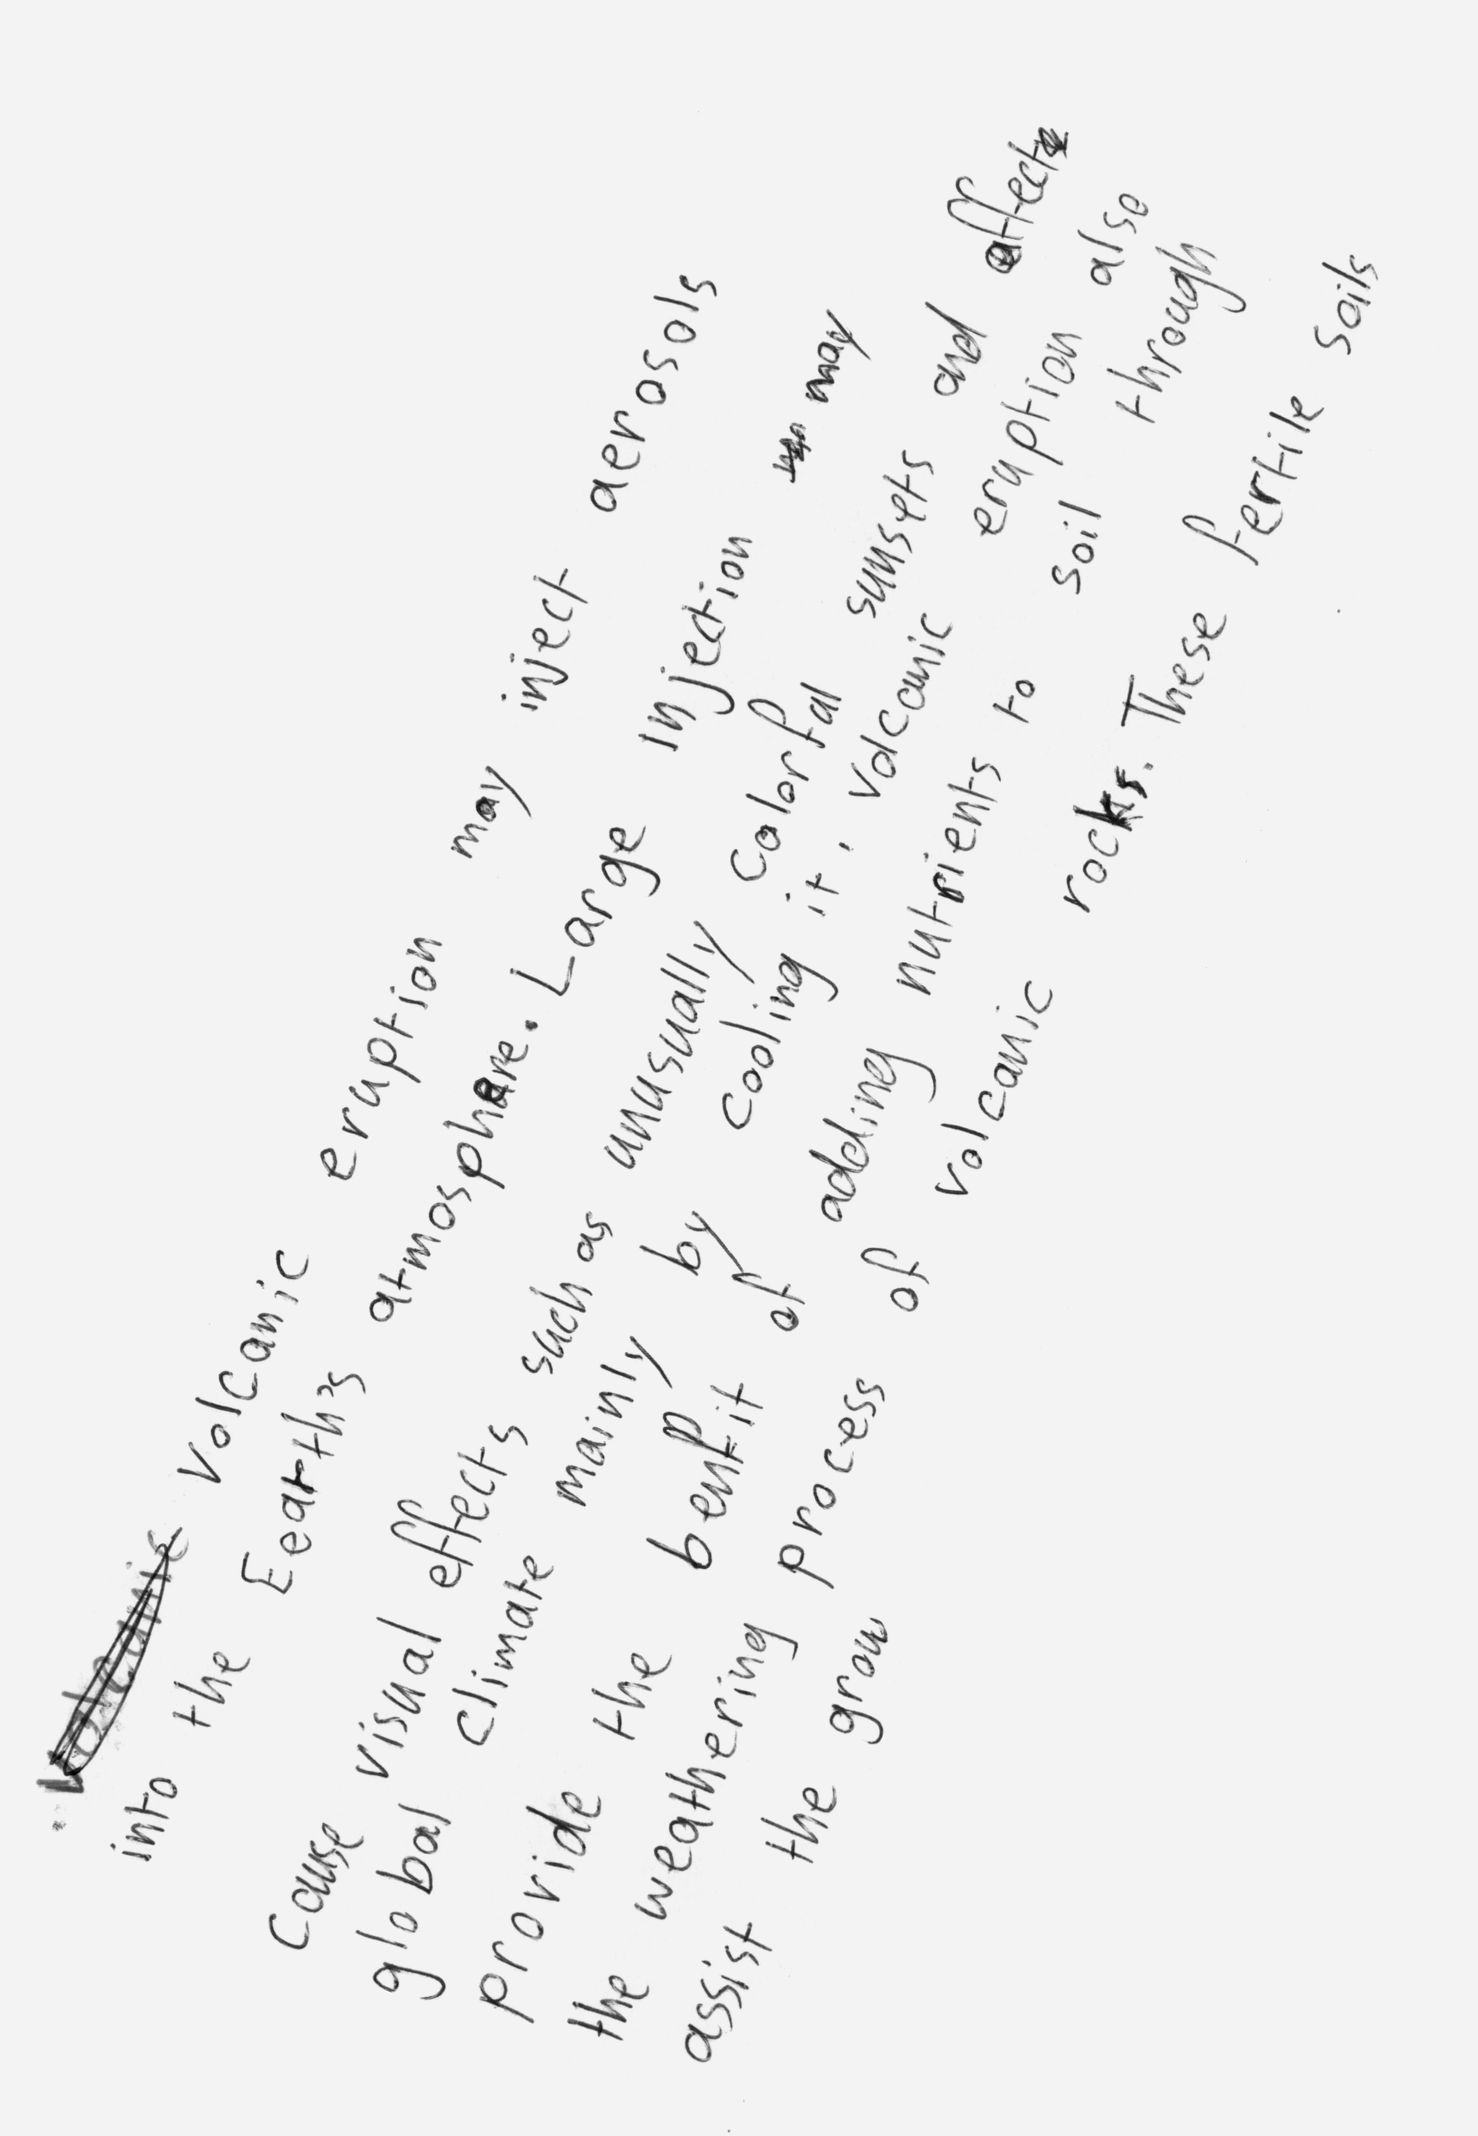 volcanic eruption may inject aerosols
into the Eearth's atmosphere. Large injection may
cause visual effects such as unusually colorful sunsets and affect
global climate mainly by cooling it. volcanic eruption also
provide the benfit of adding nutrients to soil through
the weathering process of volcanic rocks. These fertile soils
assist the grow